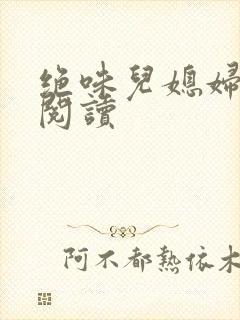 绝味兒媳婦
閱讀
阿不都熱依木